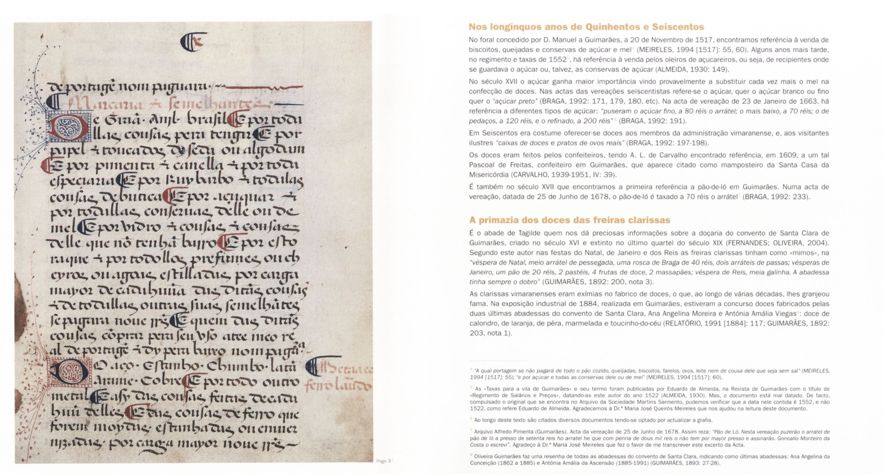 de portagẽ nom paguara
Marcaria ⁊ semelhantes
E Grãa. Anil. brasil E por toda
llas cousas pera tengir E por
papel ⁊ toucados de sedu ou algodam
E por pimenta ⁊ canella ⁊ por toda
especiaria E por Ruy barbo ⁊ todallas
cousas de butica E por açuquar ⁊
por todallas conservas delle ou de
mel E por vidro ⁊ cousas ⁊ cousas
delle que nõ tenhã barro E por esto
raque ⁊ por todollos prefumes ou ch
eyros ou agoas estilladas por carga
mayor de cada hũa das ditas cousas
⁊ de todallas outras suas semelhãtes
se pagara nove rrs E quem das ditas
cousas cõprar pera seu uso atee meo re
al de portagẽ ⁊ dy pera baixo nom pagra
O aço. Estanho. Chumbo. latã
Arame. Cobre E por todo outro
metal E assy das cousas feitas de cada
hũu delles E das cousas de ferro que
forem moydas estanhadas ou enver
nizadas por carga mayor nove rrs
Metaes
ferro laurado
Página 3
Nos longínquos anos de Quinhentos e Seiscentos
No foral concedido por D. Manuel a Guimarães, a 20 de Novembro de 1517, encontramos referência à venda de
biscoitos, queijadas e conservas de açúcar e mel (MEIRELES, 1994 [1517]: 55, 60). Alguns anos mais tarde,
no regimento e taxas de 1552, há referência à venda pelos oleiros de açucareiros, ou seja, de recipientes onde
se guardava o açúcar ou, talvez, as conservas de açúcar (ALMEIDA, 1930: 149).
No século XVII o açúcar ganha maior importância vindo provavelmente a substituir cada vez mais o mel na
confecção de doces. Nas actas das vereações seiscentistas refere-se o açúcar, quer o açúcar branco ou fino
quer o "açúcar preto" (BRAGA, 1992: 171, 179, 180, etc). Na acta de vereação de 23 de Janeiro de 1663, há
referência a diferentes tipos de açúcar: "puseram o açúcar fino, a 80 réis o arrátel; o mais baixo, a 70 réis; o de
pedaços, a 120 réis, e o refinado, a 200 réis" (BRAGA, 1992: 191).
Em Seiscentos era costume oferecer-se doces aos membros da administração vimaranense, e, aos visitantes
ilustres "caixas de doces e pratos de ovos reais" (BRAGA, 1992: 197-198).
Os doces eram feitos pelos confeiteiros, tendo A. L. de Carvalho encontrado referência, em 1609, a um tal
Pascoal de Freitas, confeiteiro em Guimarães, que aparece citado como mamposteiro da Santa Casa da
Misericórdia (CARVALHO, 1939-1951, IV: 39).
É também no século XVII que encontramos a primeira referência a pão-de-ló em Guimarães. Numa acta de
vereação, datada de 25 de Junho de 1678, o pão-de-ló é taxado a 70 réis o arrátel (BRAGA, 1992: 233).
A primazia dos doces das freiras clarissas
É o abade de Tagilde quem nos dá preciosas informações sobre a doçaria do convento de Santa Clara de
Guimarães, criado no século XVI e extinto no último quartel do século XIX (FERNANDES; OLIVEIRA, 2004).
Segundo este autor nas festas do Natal, de Janeiro e dos Reis as freiras clarissas tinham como «mimos», na
"véspera de Natal, meio arrátel de pessegada, uma rosca de Braga de 40 réis, dois arráteis de passas; vésperas de
Janeiro, um pão de 20 réis, 2 pastéis, 4 frutas de doce, 2 massapães; véspera de Reis, meia galinha. A abadessa
tinha sempre o dobro" (GUIMARÃES, 1892: 200, nota 3).
As clarissas vimaranenses eram exímias no fabrico de doces, o que, ao longo de várias décadas, lhes granjeou
fama. Na exposição industrial de 1884, realizada em Guimarães, estiveram a concurso doces fabricados pelas
duas últimas abadessas do convento de Santa Clara, Ana Angelina Moreira e Antónia Amália Viegas: doce de
calondro, de laranja, de pêra, marmelada e toucinho-do-céu (RELATÓRIO, 1991 [1884]: 117; GUIMARÃES, 1892:
203, nota 1).
"A qual portagem se não pagará de todo o pão cozido, queijadas, biscoitos, farelos, ovos, leite nem de cousa dele que seja sem sal" (MEIRELES,
1994 [1517]: 55); "e por açúcar e todas as conservas dele ou de mel" (MEIRELES, 1994 [1517]: 60).
As «Taxas para a vila de Guimarães» e seu termo foram publicadas por Eduardo de Almeida, na Revista de Guimarães com o título de
«Regimento de Salários e Preços», datando-as este autor do ano 1522 (ALMEIDA, 1930). Mas, o documento está mal datado. De facto,
compulsado o original que se encontra no Arquivo da Sociedade Martins Sarmento, pudemos verificar que a data nele contida é 1552, e não
1522, como refere Eduardo de Almeida. Agradecemos à Dr.ª Maria José Queirós Meireles que nos ajudou na leitura deste documento.
Ao longo deste texto são citados diversos documentos tendo-se optado por actualizar a grafia.
Arquivo Alfredo Pimenta (Guimarães). Acta da vereação de 25 de Junho de 1678. Assim reza: "Pão de Ló. Nesta vereação puzerão o arratel de
pão de ló a presso de setenta reis ho arratel he que com penna de dous mil reis o não tem por mayor presso e assinarão. Goncalo Monteiro da
Costa o escrevi". Agradeço à Dr.ª Maria José Meireles que fez o favor de me transcrever este excerto da Acta.
Oliveira Guimarães faz uma resenha de todas as abadessas do convento de Santa Clara, indicando como últimas abadessas: Ana Angelina da
Conceição (1862 a 1885) e Antónia Amália da Ascensão (1885-1991) (GUIMARÃES, 1893: 27-28).